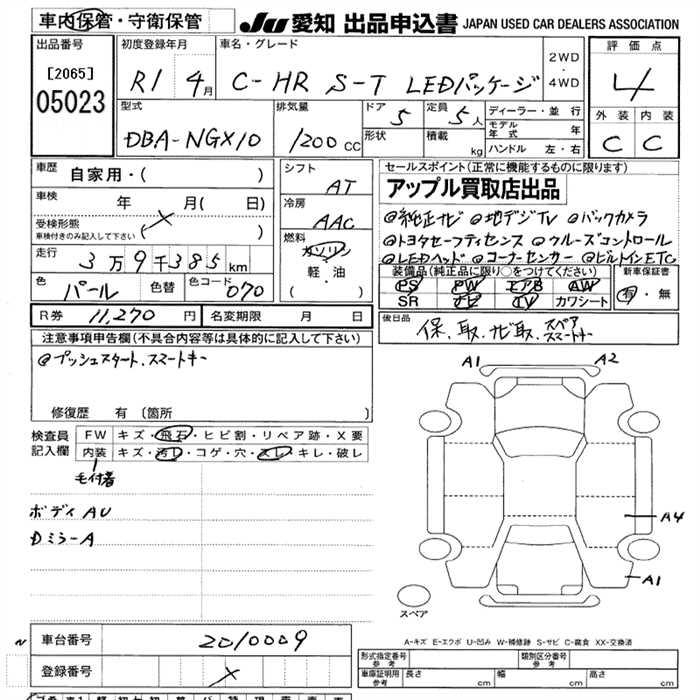 車内保管・守衛保管
JU 愛知 出品申込書 JAPAN USED CAR DEALERS ASSOCIATION
出品番号
[2065]
05023
初度登録年月
R1 4月
車名・グレード
C-HR S-T LEDパッケージ
2WD
・
4WD
評価点
4
外装 内装
C C
型式
DBA-NGX10
排気量
1200 CC
ドア
5
定員
5人
形状
積載
kg
ディーラー・並行
モデル年式 年
ハンドル 左・右
車歴
自家用・( )
車検
年 月( 日)
受検形態
車検付きのみ記入して下さい
( × )
走行
3万9千385km
色
パール
色替
色コード
070
シフト
AT
冷房
AAC
燃料
ガソリン
軽・油
( )
R券 11,270 円
名変期限 月 日
セールスポイント(正常に機能するものに限ります)
アップル買取店出品
@純正ナビ @地デジTV @バックカメラ
@トヨタセーフティセンス @クルーズコントロール
@LEDヘッド @コーナーセンサー @ビルトインETC
装備品(純正品に限り○をつけてください)
PS PW エアB AW
SR ナビ TV カワシート
新車保証書
有・無
後日品
保、取、ナビ取、スペアスマートキー
注意事項申告欄(不具合内容等は具体的に記入して下さい)
@プッシュスタート、スマートキー
修復歴 有 〔箇所 〕
検査員
記入欄
FW キズ・飛石・ヒビ割・リペア跡・X要
内装 キズ・汚レ・コゲ・穴・スレ・キレ・破レ
毛付着
ボディAU
DミラーA
A1
A2
A4
A1
スペア
A-キズ E-エクボ U-凹み W-補修跡 S-サビ C-腐食 XX-交換済
N
車台番号 2010009
登録番号 ×
形式指定番号
参考
類別区分番号
参考
車庫証明用
参考
長さ cm 幅 cm 高さ cm